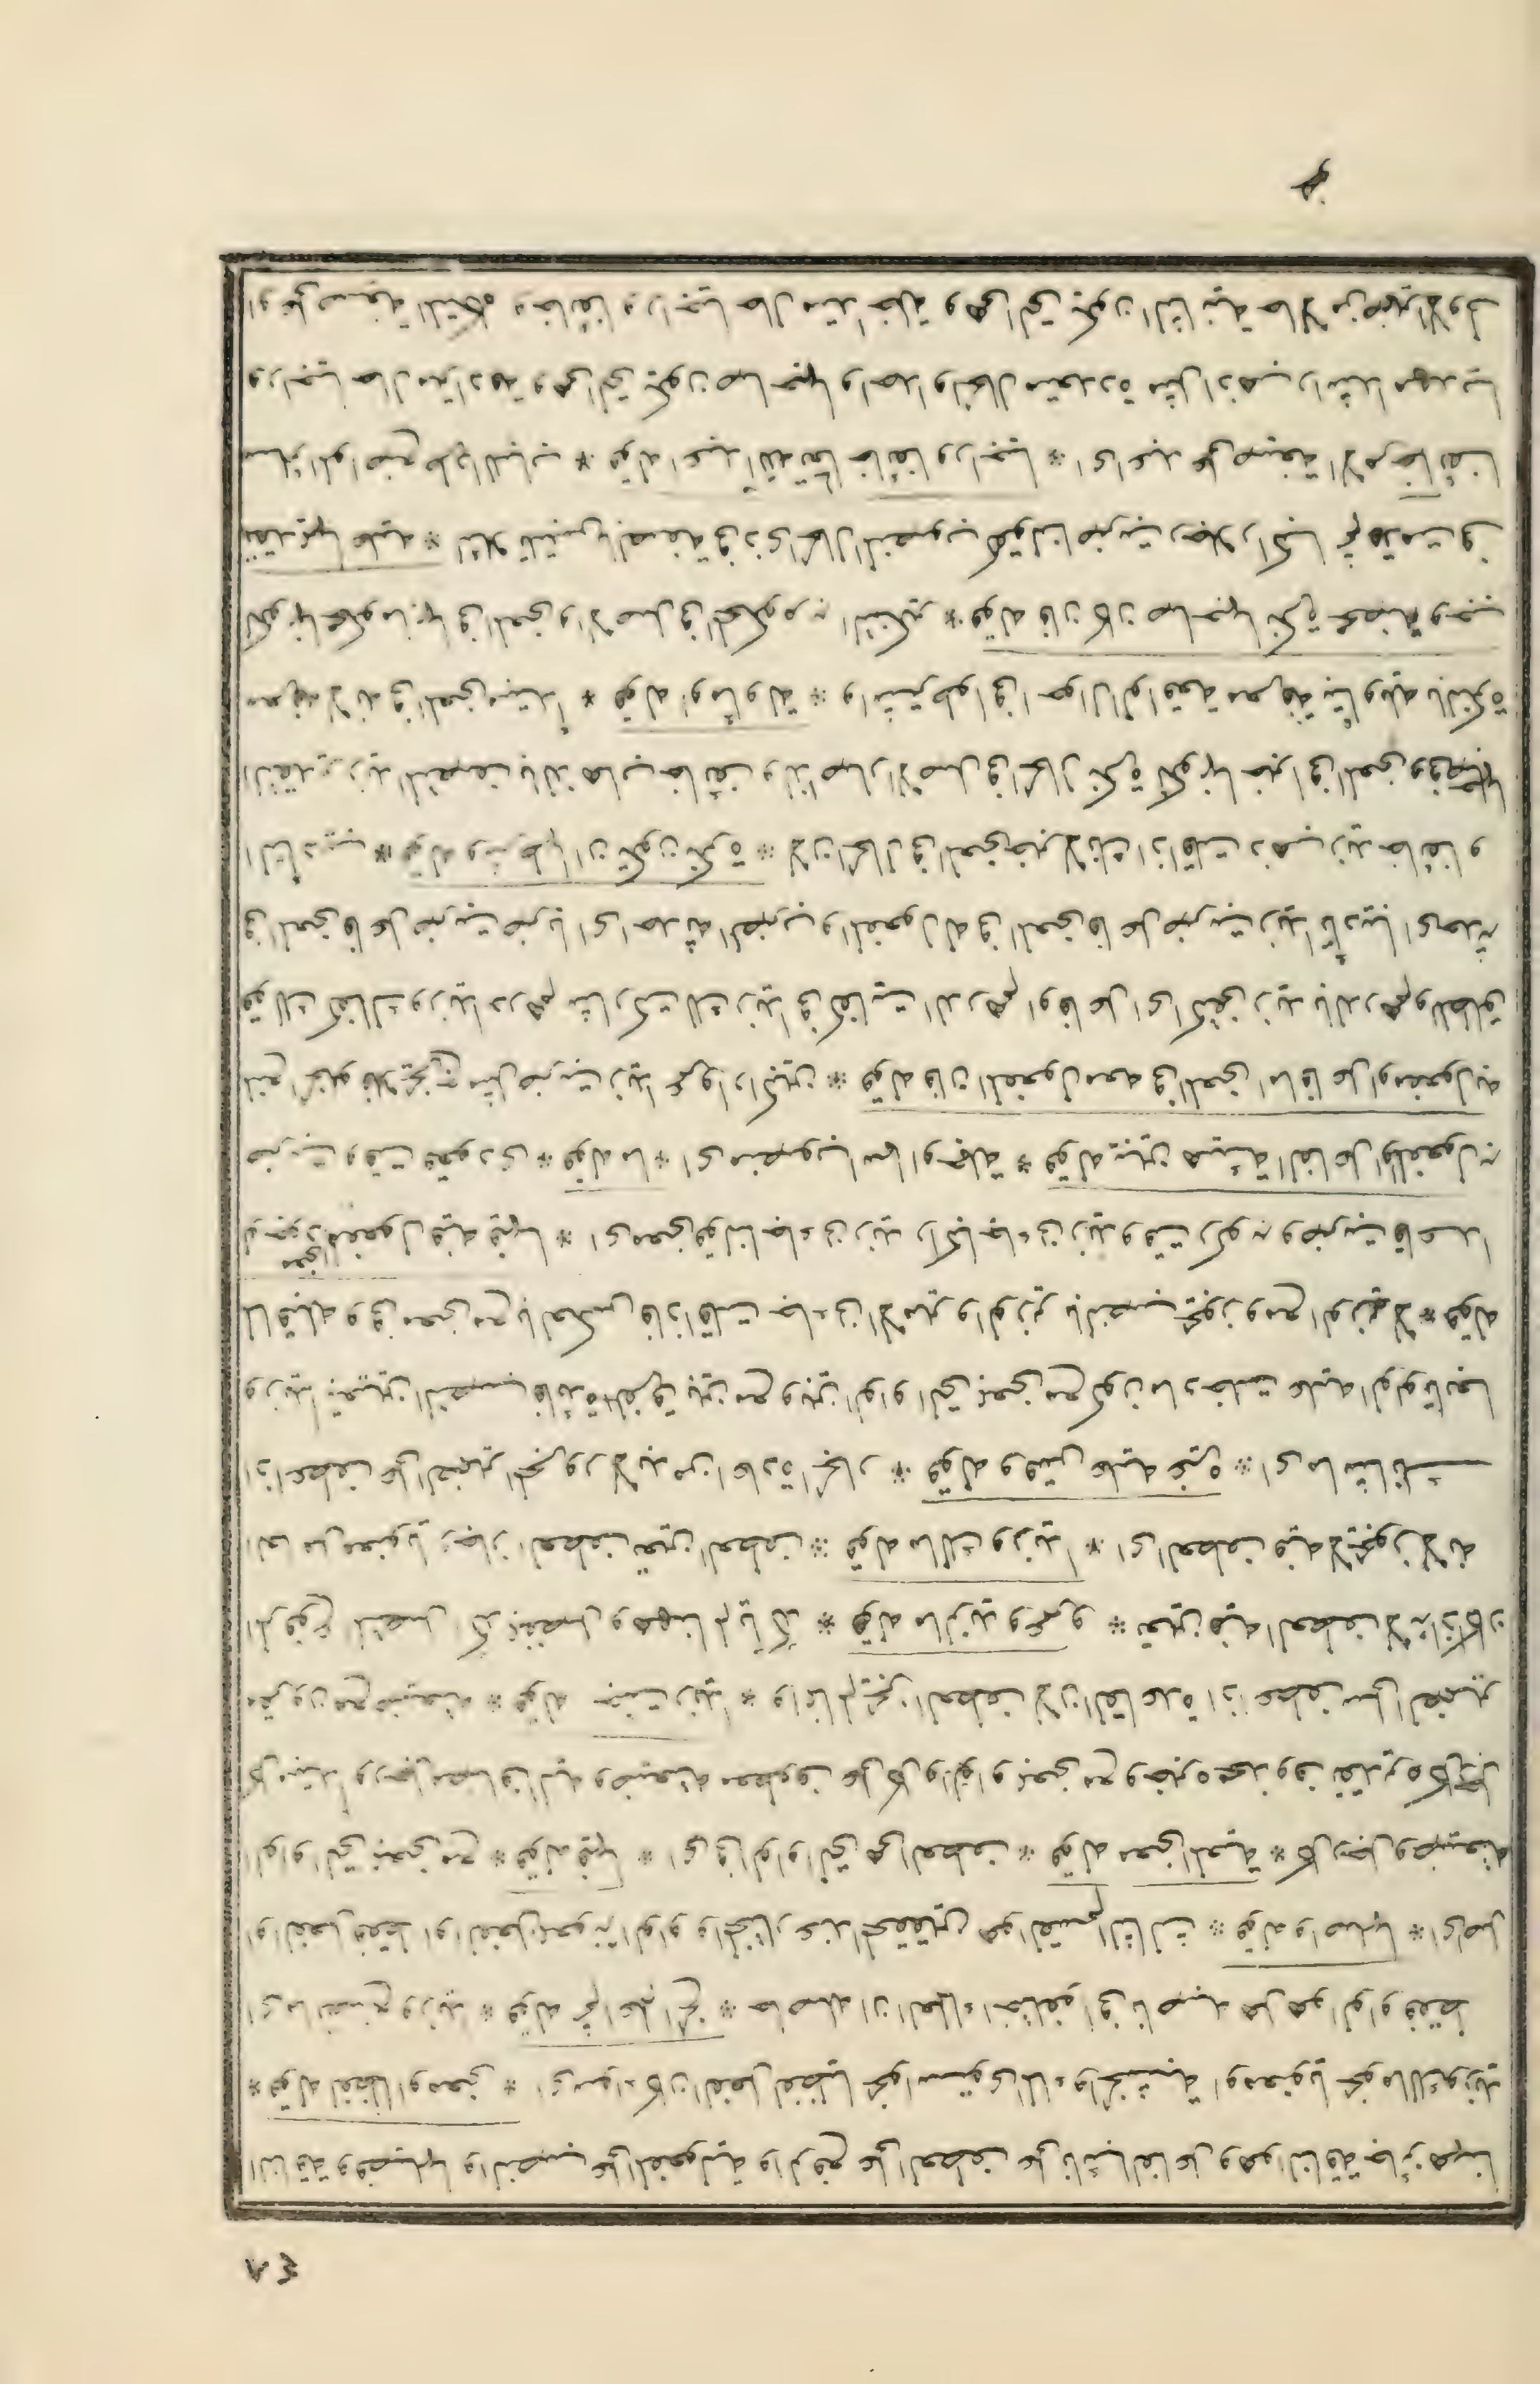 ٤٨
الناقة وفصيلها والنصب على المفعولية والرفع على العطف على نائب الفاعل وهو الناقة جائز هنا
* قوله لفظا او معنى * اى سواء كان الفعل لفظيا نحو استوى الماء والخشبة او معنويا نحو مالك وزيدا
اى ما تصنع وزيدا * قوله ثم اعلم الخ * حاصله ان العلماء اختلفوا فى ناصبه هل هو الواو فقط
او الفعل فقط او الفعل بمعونة الواو والمختار عند المحققين هو القسم الثالث * قوله واصلها * اى اصل
الواو التى بمعنى مع * قوله فيها * اى فى الواو التى هى العطف * قوله معنى المعية * كل رجل وضيعته
كل مبتدأ ورجل مضاف اليه وضيعته معطوف على كل والواو بمعنى مع وخبره محذوف تقديره كل رجل
مقرون مع ضيعته * قوله جئت وزيدا * وانما لم يجز العطف لان القاعدة اذا عطف على الضمير
المرفوع المتصل اكد بمنفصل وههنا لم يأكد * قوله ما لزيد وعمرو * تعين فيه العطف لانه اذا كان
معنويا وجاز العطف تعين العطف * قوله مالك وزيدا * اى العطف فيه لا يجوز لانه
اذا عطف على الضمير المجرور لابد من اعادة الجار * قوله وقس عليه غيره * اى ما شأنك
وزيدا تعين النصب فائدة الفرق بين مع وبين الواو التى بمعنى مع كون ما دخلت عليه الواو تابعا
لما قبله وفى معنى مع بالعكس فاذا قلت جاءنى الامير والوزير بالنصب يجوز ومع الوزير لا * قوله
المفعول فيه فيها * اى معنى قولنا جاءنى زيد راكبا جاءنى زيد وقت ركوبه وضربت قاعدا
ضربت وقت قعودى * قوله ما * اى منصوب اسما او جملة * قوله يبين هيئة الفاعل والمفعول به
فلا يخرج مثل ضربت زيدا عمرا وراكبين * قوله فان المفعول معه فى المعنى اما فاعل او مفعول به
كفاك وزيدا درهم شاركت لك زيدا فى كفايت الدرهم او فاعل اى كفى زيدا بالدرهم والمطلق
فى المعنى فاعل ضربت ضربا اى احدثه الضرب والمفعول له فى المعنى فاعل ضربت زيدا تأديبا اى احدثه
التأديب * قوله وشرطها ان تكون نكرة * لان الحال فى المعنى خبر لانك اذا قلت ذهب زيد خائفا و
التقدير زيد المتصف بالذهاب خائف ولذا صار الاصل فى الحال نكرة لكونها خبرا فى المعنى وفى صاحبها
معرفة لانه فى المعنى مبتدأ * قوله او مأولة * واشترطوا فى احوال الواقعة معرفة تأويله بالنكرة
لكونها محكوما بها فى المعنى والاصل فى المحكوم به التنكير * قوله فان كان صاحبها نكرة محضة وجب
تقديمها عليه * لئلا يلتبس بالصفة فى ذى الحال المنصوب كقولنا ضربت رجلا راكبا ثم قدمت فى
سائر المواضع طردا للباب * قوله اعبد الله تعالى خائفا وراجيا * اى اعبد على صيغة الامر خائفا
وراجيا حال مترادفة وهى التى تكون صاحبها واحدا والحال متعددة مثل اذهب راشدا مهديا
او على صيغة المتكلم وخائفا وراجيا حال متداخلة وهى التى تكون الثانية حالا من ضمير الاول